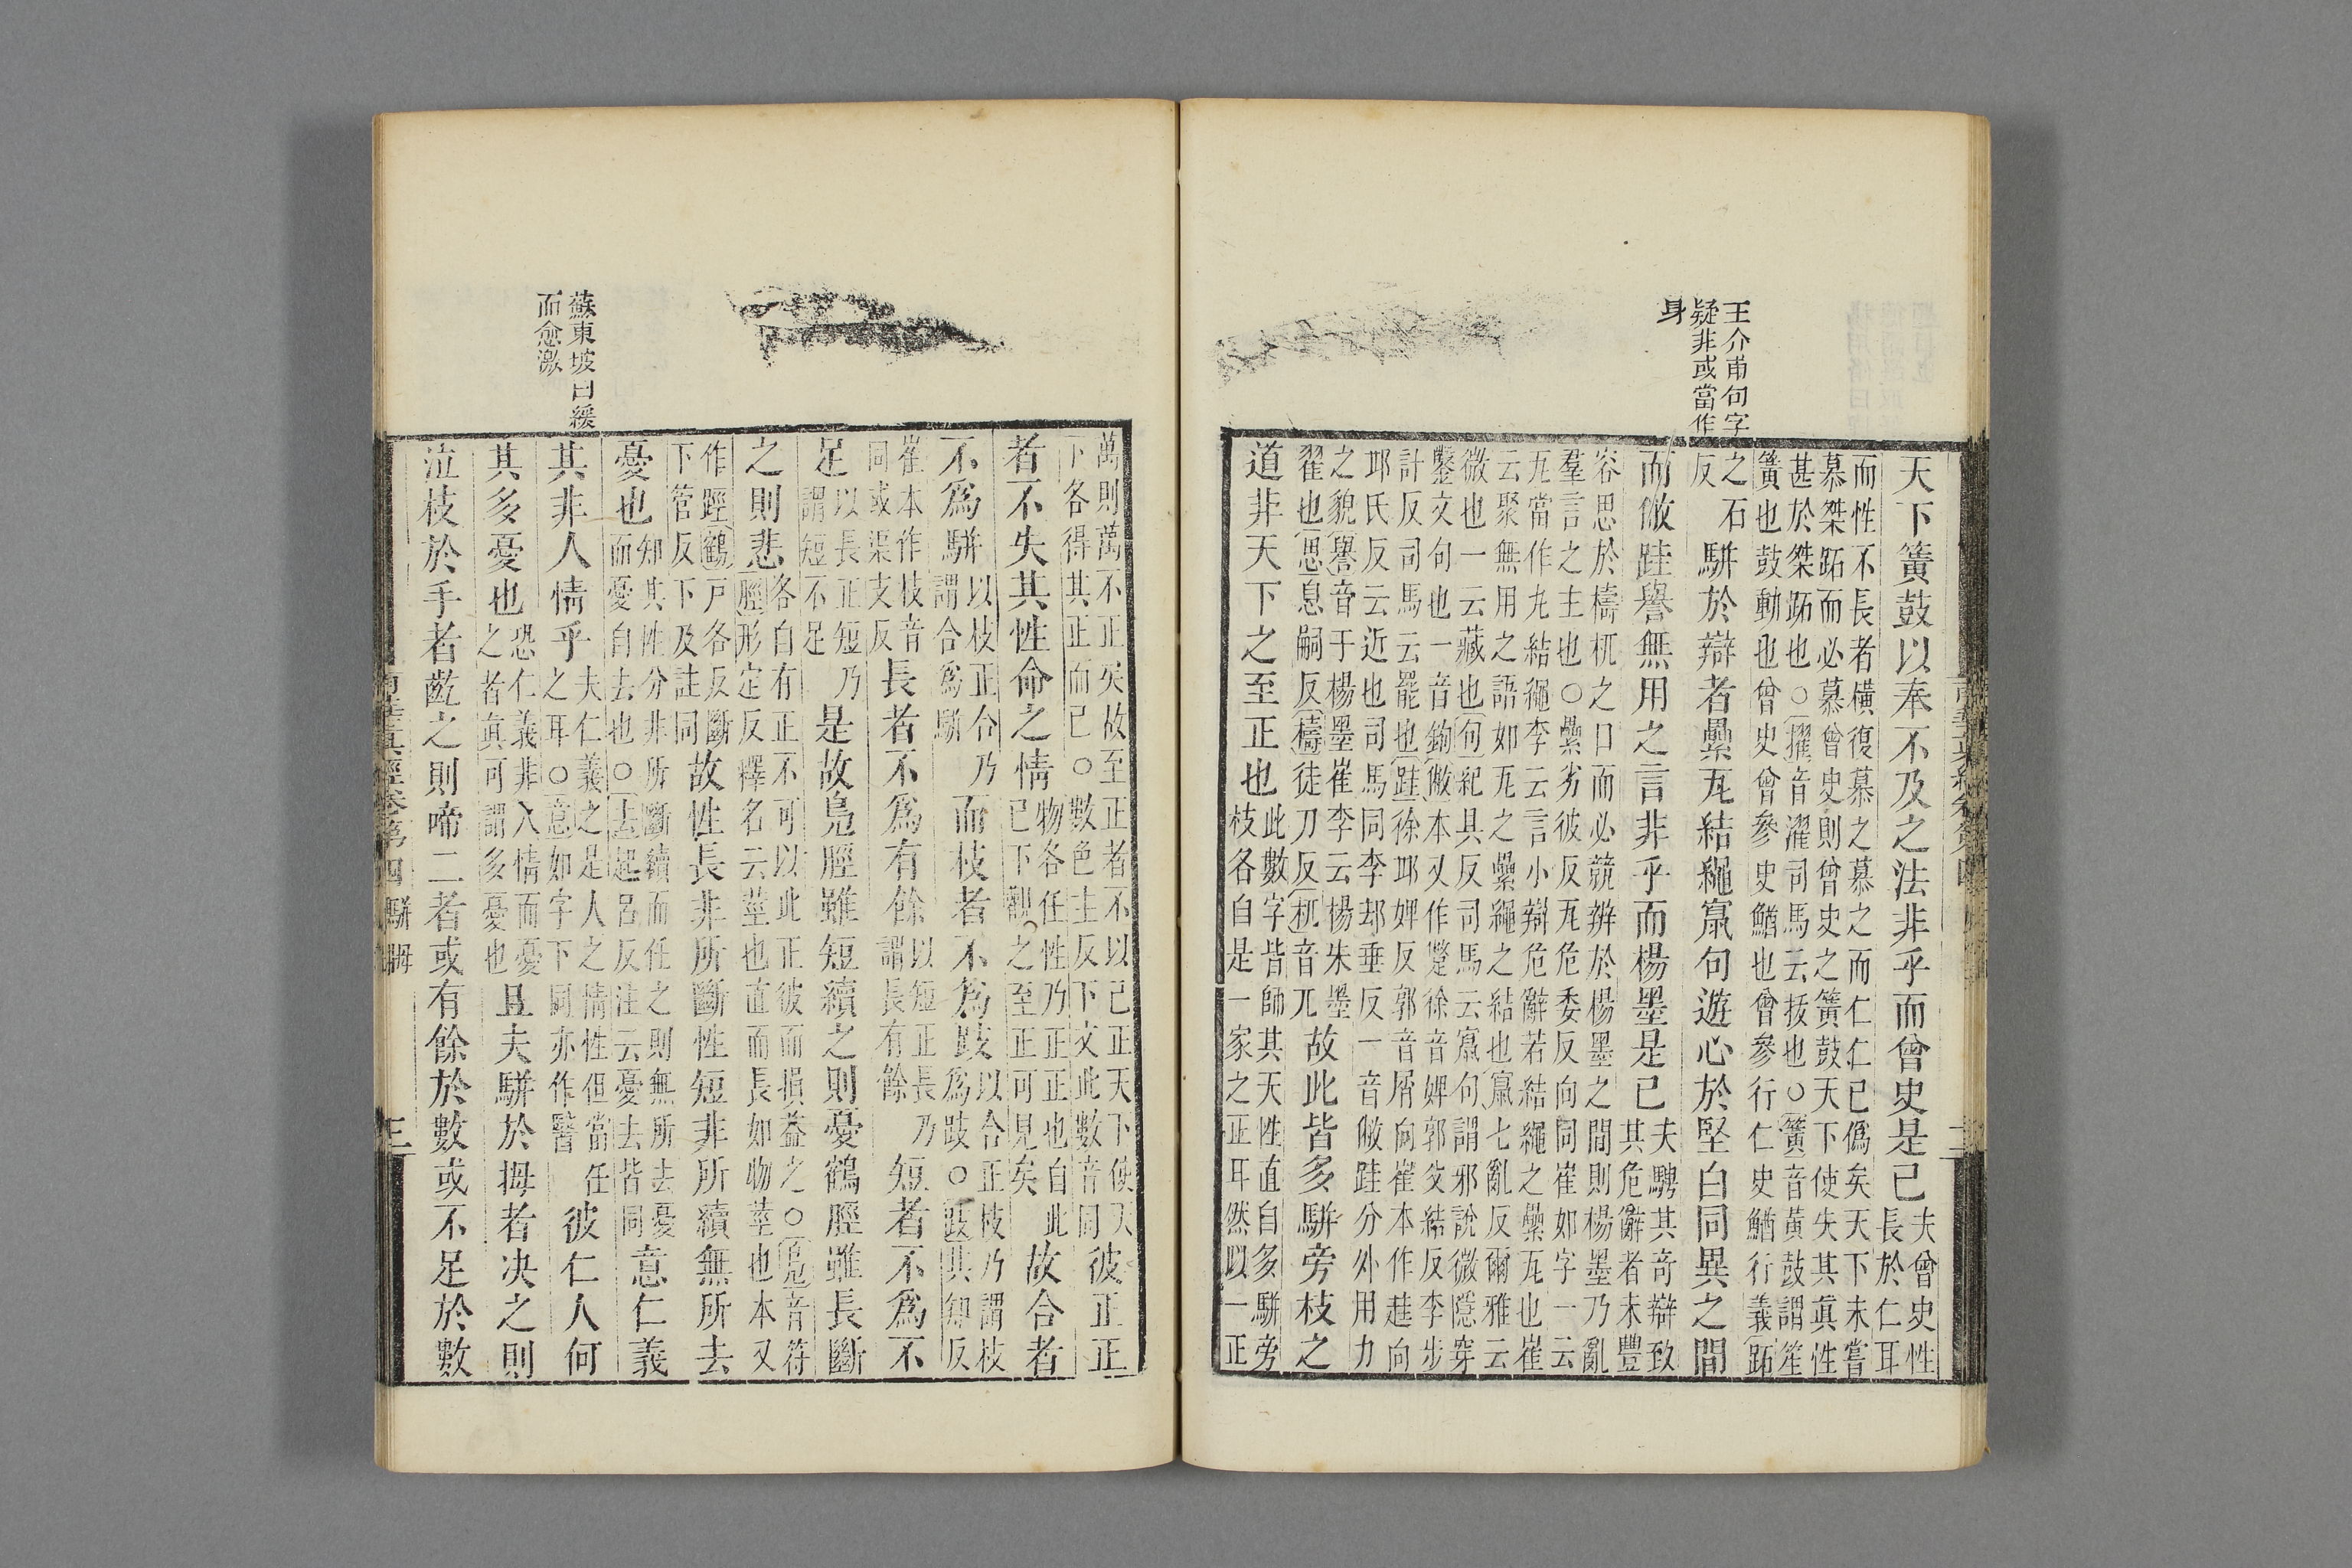 王介甫句字
疑非或當作
身
天下簧鼓以奉不及之法非乎而曾史是已
夫曾史性
長於仁耳
而性不長者橫復慕之慕之而仁仁已僞矣天下未嘗
慕桀跖而必慕曾史則曾史之簧鼓天下使失其真性
甚於桀跖也○擢音濯司馬云拔也○簧音黃鼓謂笙
簧也鼓動也曾史曾參史鰌也曾參行仁史鰌行義跖
之石
反
駢於辯者纍瓦結繩竄句遊心於堅白同異之間
而敝跬譽無用之言非乎而楊墨是已
夫騁其奇辯致
其危辭者未豐
容思於檮杌之口而必競辨於楊墨之間則楊墨乃亂
羣言之主也○纍劣彼反瓦危委反向同崔如字一云
瓦當作丸結繩李云言小辯危辭若結繩之纍瓦也崔
云聚無用之語如瓦之纍繩之結也竄七亂反爾雅云
微也一云藏也句紀具反司馬云竄句謂邪說微隱穿
鑿文句也一音鉤敝本又作蹩徐音婢郭父結反李步
計反司馬云罷也跬徐邱婢反郭音屑向崔本作趌向
邱氏反云近也司馬同李却垂反一音敝跬分外用力
之貌譽音于楊墨崔李云楊朱墨
翟也思息嗣反檮徒刀反杌音兀
故此皆多駢旁枝之
道非天下之至正也
此數字皆師其天性直自多駢旁
枝各自是一家之正耳然以一正
蘇東坡曰緩
而愈激
萬則萬不正矣故至正者不以己正天下使天
下各得其正而已○數色主反下文此數音同
彼正正
者不失其性命之情
物各任性乃正正也自此
已下觀之至正可見矣
故合者
不爲駢
以枝正合乃
謂合爲駢
而枝者不爲跂
以合正枝乃謂枝
爲跂○跂其知反
崔本作枝音
同或渠支反
長者不爲有餘
以短正長乃
謂長有餘
短者不爲不
足
以長正短乃
謂短不足
是故鳧脛雖短續之則憂鶴脛雖長斷
之則悲
各自有正不可以此正彼而損益之○鳧音符
脛形定反釋名云莖也直而長如物莖也本又
作踁鶴戶各反斷
下管反下及註同
故性長非所斷性短非所續無所去
憂也
知其性分非所斷續而任之則無所去憂
而憂自去也○去起呂反注云憂去皆同
意仁義
其非人情乎
夫仁義之是人之情性但當任
之耳○意如字下同亦作醫
彼仁人何
其多憂也
恐仁義非人情而憂
之者真可謂多憂也
且夫駢於拇者決之則
泣枝於手者齕之則啼二者或有餘於數或不足於數
南華真經卷第四 駢拇 三